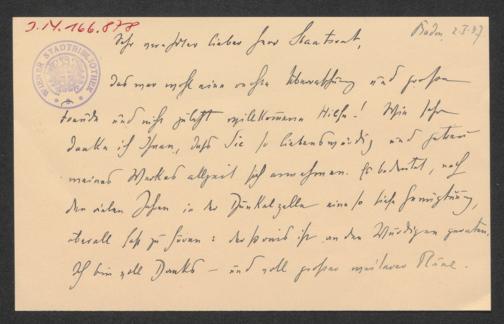 J.N. 166.878
Baden, 2.I.37
WIENER STADTBIBLIOTHEK
Sehr verehrter lieber Herr Staatsrat,
das war wohl eine rechte Überraschung und große
Freude und nicht zuletzt willkommene Hilfe! Wie sehr
danke ich Ihnen, daß Sie so liebenswürdig und
meines Werkes allzeit sich annehmen. Es bedeutet, nach
den vielen Jahren in der Dunkelzelle eine so tiefe Genugtuung,
überall fast zu hören: der Preis ist an den Würdigen geraten.
Ich bin voll Danks – und voll großer weiterer Pläne.